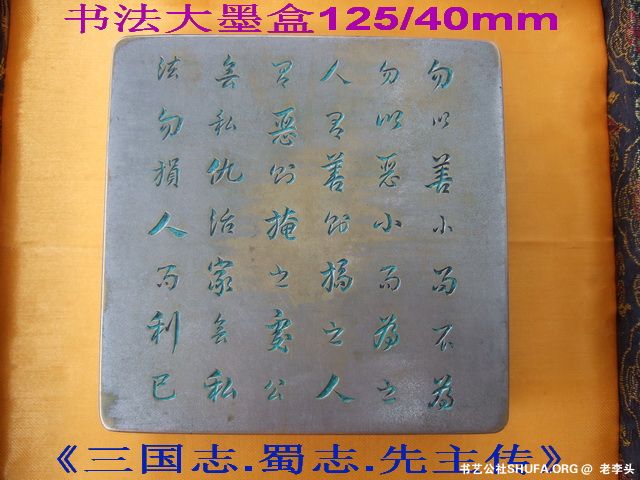 书法大墨盒125/40mm
勿以善小而不為
勿以惡小而為之
人有善則揚之人
有惡則掩之處公
無私仇治家無私
法勿損人而利己
《三国志.蜀志.先主传》
书艺公社SHUFA.ORG @ 老李头